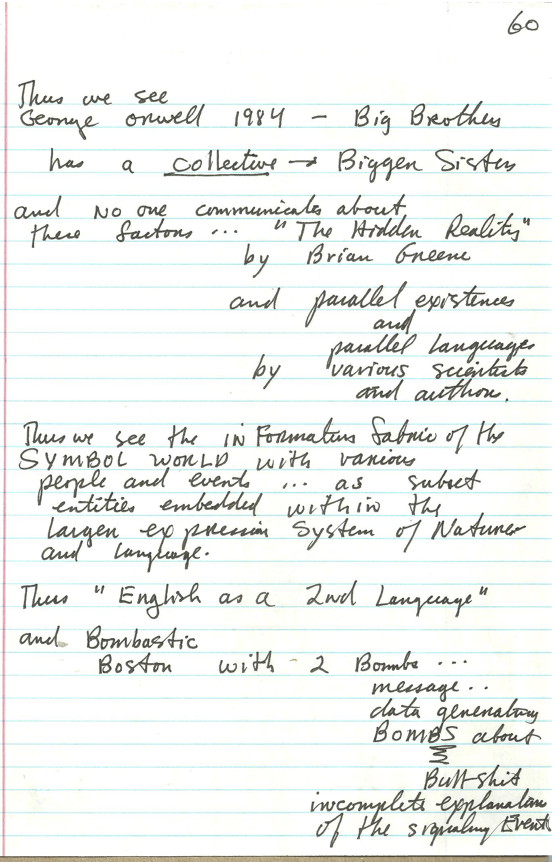 60
Thus we see
George Orwell 1984 - Big Brothers
has a collective → Bigger Sisters
and No one communicates about
these factors ... "The Hidden Reality"
by Brian Greene
and parallel existences
and
parallel Languages
by various scientists
and authors.
Thus we see the in Formation fabric of the
SYMBOL WORLD with various
people and events ... as subset
entities embedded within the
larger expression System of Nature
and language.
Thus "English as a 2nd Language"
and Bombastic
Boston with - 2 Bombs ...
message..
data generating
BOMBS about
Bull-shit
incomplete explanation
of the signaling Event